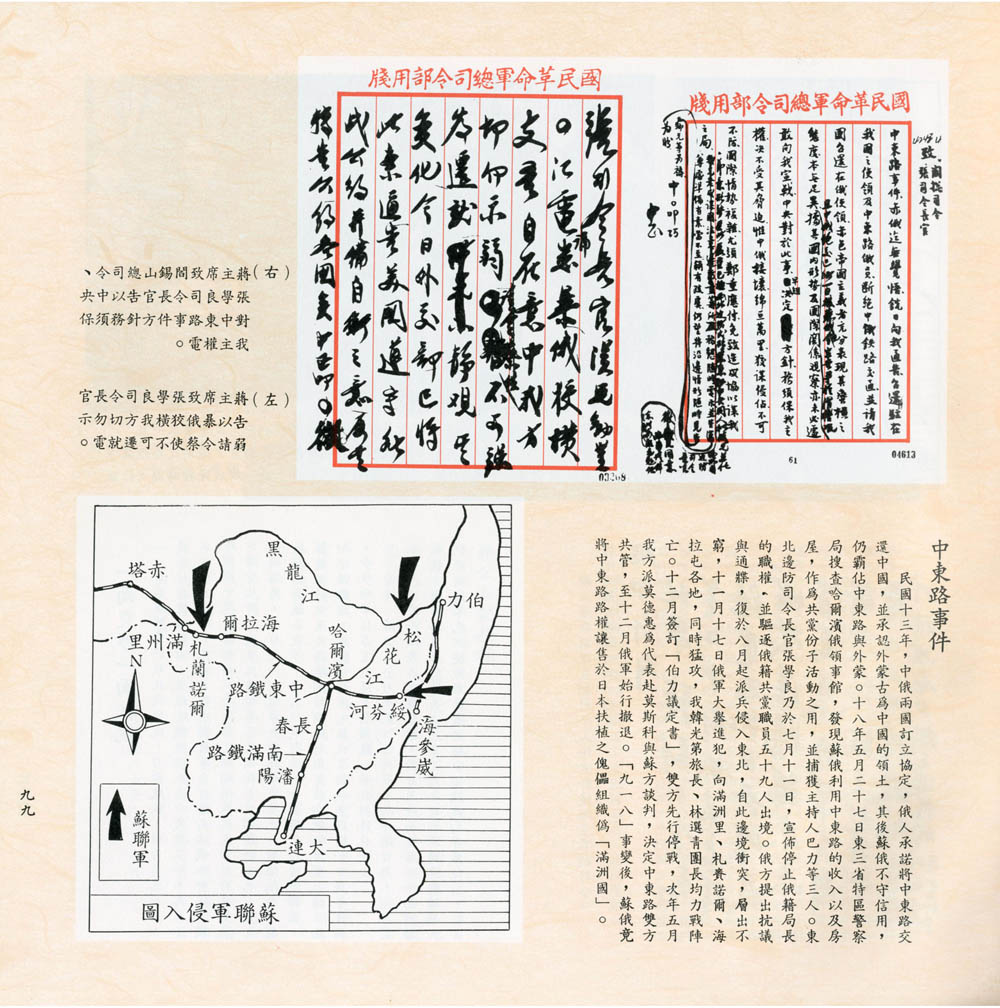 國民革命軍總司令部用牋
致 閻總司令
張司令長官
中東路事件赤俄迄無覺悟
我國之使領及中東路俄員斷絕中俄鐵路交通並請我
國召還在俄使領赤色帝國主義者充分表現其蠻橫之
態度
敢向我宣戰中央對於此事決定方針務須保我主
權決不受其脅迫惟中俄接壤綿亙萬里
不防國際情勢複雜尤須鄭重應付免致造次
中〇叩巧
中正
61
04613
國民革命軍總司令部用牋
張司令長官漢兄勛鑒
〇江電悉暴俄狡橫
支吾自在意中我方
切勿示弱
為遷就靜觀其
變化今日外交部已將
此案通告美國遵守非
戰公約並備自衛之意
03268
(右)蔣主席致閻錫山總司令、
張學良司令長官告以中央
對中東路事件方針務須保
我主權電。
(左)蔣主席致張學良司令長官
告以暴俄狡橫我方切勿示
弱請令蔡使不可遷就電。
中東路事件
民國十三年,中俄兩國訂立協定,俄人承諾將中東路交
還中國,並承認外蒙古為中國的領土,其後蘇俄不守信用,
仍霸佔中東路與外蒙。十八年五月二十七日東三省特區警察
局搜查哈爾濱俄領事館,發現蘇俄利用中東路的收入以及房
屋,作為共黨份子活動之用,並捕獲主持人巴力等三人。東
北邊防司令長官張學良乃於七月十一日,宣佈停止俄籍局長
的職權、並驅逐俄籍共黨職員五十九人出境。俄方提出抗議
與通牒,復於八月起派兵侵入東北,自此邊境衝突,層出不
窮,十一月十七日俄軍大舉進犯,向滿洲里、札賚諾爾、海
拉屯各地,同時猛攻,我韓光第旅長、林選青團長均力戰陣
亡。十二月簽訂「伯力議定書」,雙方先行停戰,次年五月
我方派莫德惠為代表赴莫斯科與蘇方談判,決定中東路雙方
共管,至十二月俄軍始行撤退。「九一八」事變後,蘇俄竟
將中東路路權讓售於日本扶植之傀儡組織偽「滿洲國」。
黑龍江
赤塔
伯力
松花江
海拉爾
滿州里
札蘭諾爾
哈爾濱
中東鐵路
綏芬河
海參崴
長春
南滿鐵路
瀋陽
大連
N
蘇聯軍
蘇聯軍侵入圖
九九